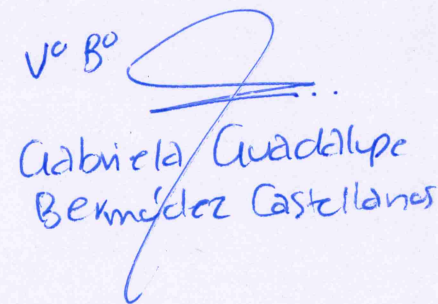 Vº Bº
Gabriela Guadalupe
Bermúdez Castellanos